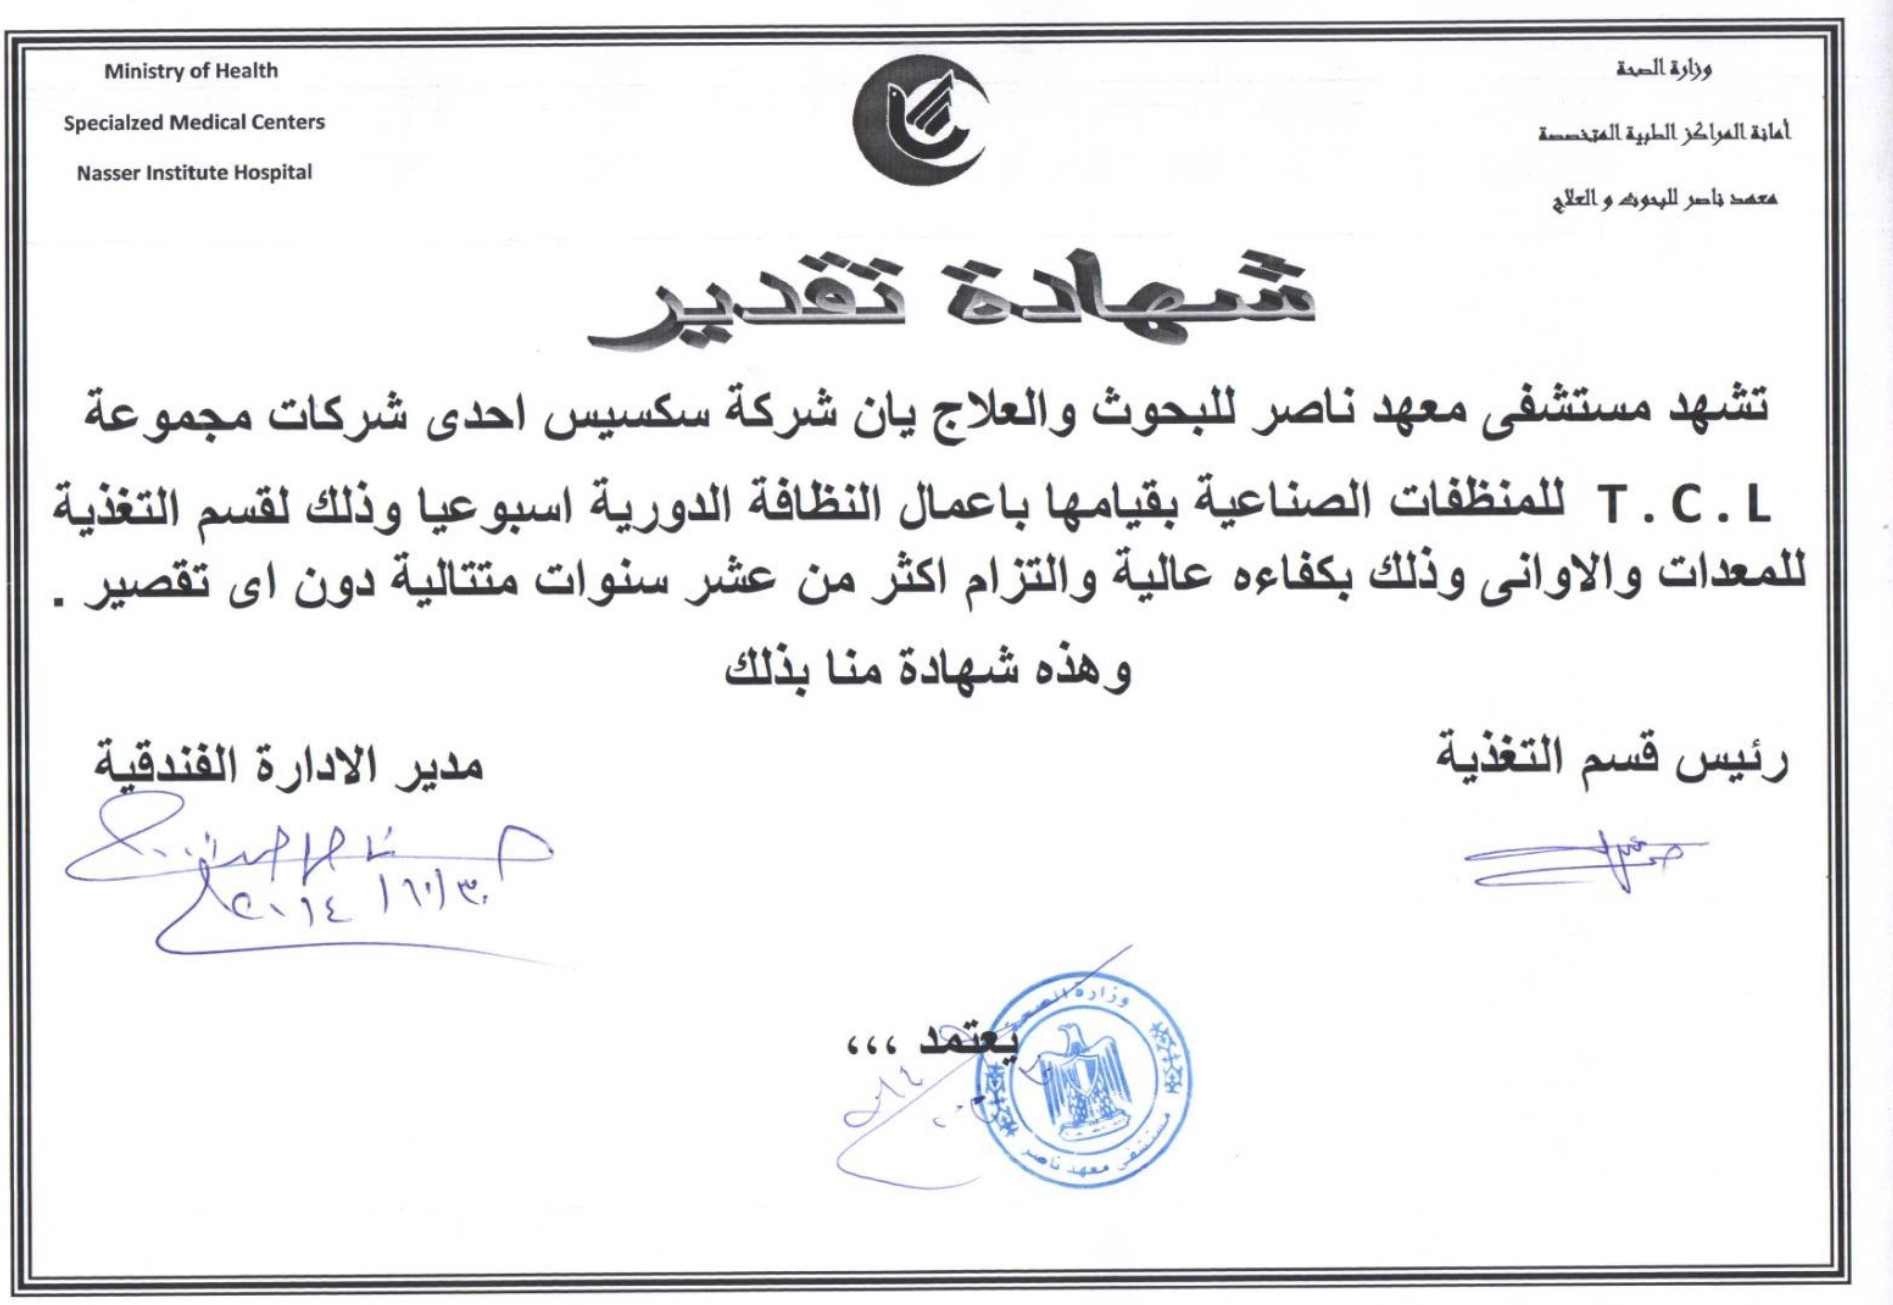 Ministry of Health
Specialzed Medical Centers
Nasser Institute Hospital
وزارة الصحة
أمانة المراكز الطبية المتخصصة
معهد ناصر للبحوث و العلاج
شهادة تقدير
تشهد مستشفى معهد ناصر للبحوث والعلاج يان شركة سكسيس احدى شركات مجموعة
T . C . L للمنظفات الصناعية بقيامها باعمال النظافة الدورية اسبوعيا وذلك لقسم التغذية
للمعدات والاوانى وذلك بكفاءه عالية والتزام اكثر من عشر سنوات متتالية دون اى تقصير .
وهذه شهادة منا بذلك
رئيس قسم التغذية
مدير الادارة الفندقية
يعتمد ،،،
وزارة الصحة
مستشفى معهد ناصر